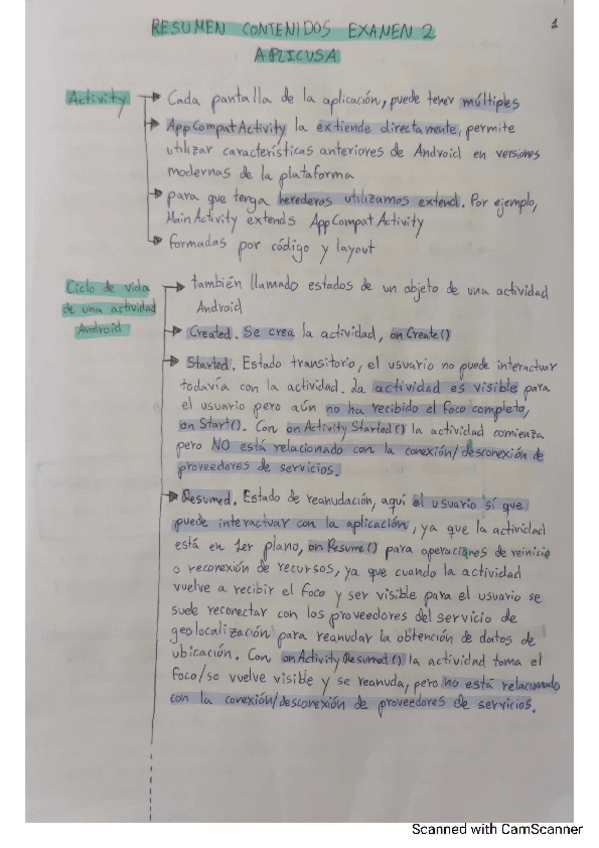 RESUMEN CONTENIDOS EXAMEN 2
1
APLICUSA
Activity
Cada pantalla de la aplicación, puede tener múltiples
AppCompatActivity la extiende directamente, permite
utilizar características anteriores de Android en versiones
modernas de la plataforma
para que tenga herederos utilizamos extend. Por ejemplo,
MainActivity extends AppCompatActivity
formadas por código y layout
Ciclo de vida
de una actividad
Android
también llamado estados de un objeto de una actividad
Android
Created. Se crea la actividad, onCreate()
Started. Estado transitorio, el usuario no puede interactuar
todavía con la actividad. La actividad es visible para
el usuario pero aún no ha recibido el foco completo,
onStart(). Con onActivityStarted() la actividad comienza
pero NO está relacionado con la conexión/desconexión de
proveedores de servicios.
Resumed. Estado de reanudación, aquí el usuario sí que
puede interactuar con la aplicación, ya que la actividad
está en 1er plano, onResume() para operaciones de reinicio
o reconexión de recursos, ya que cuando la actividad
vuelve a recibir el foco y ser visible para el usuario se
suele reconectar con los proveedores del servicio de
geolocalización para reanudar la obtención de datos de
ubicación. Con onActivityResumed() la actividad toma el
foco/se vuelve visible y se reanuda, pero no está relacionado
con la conexión/desconexión de proveedores de servicios.
Scanned with CamScanner